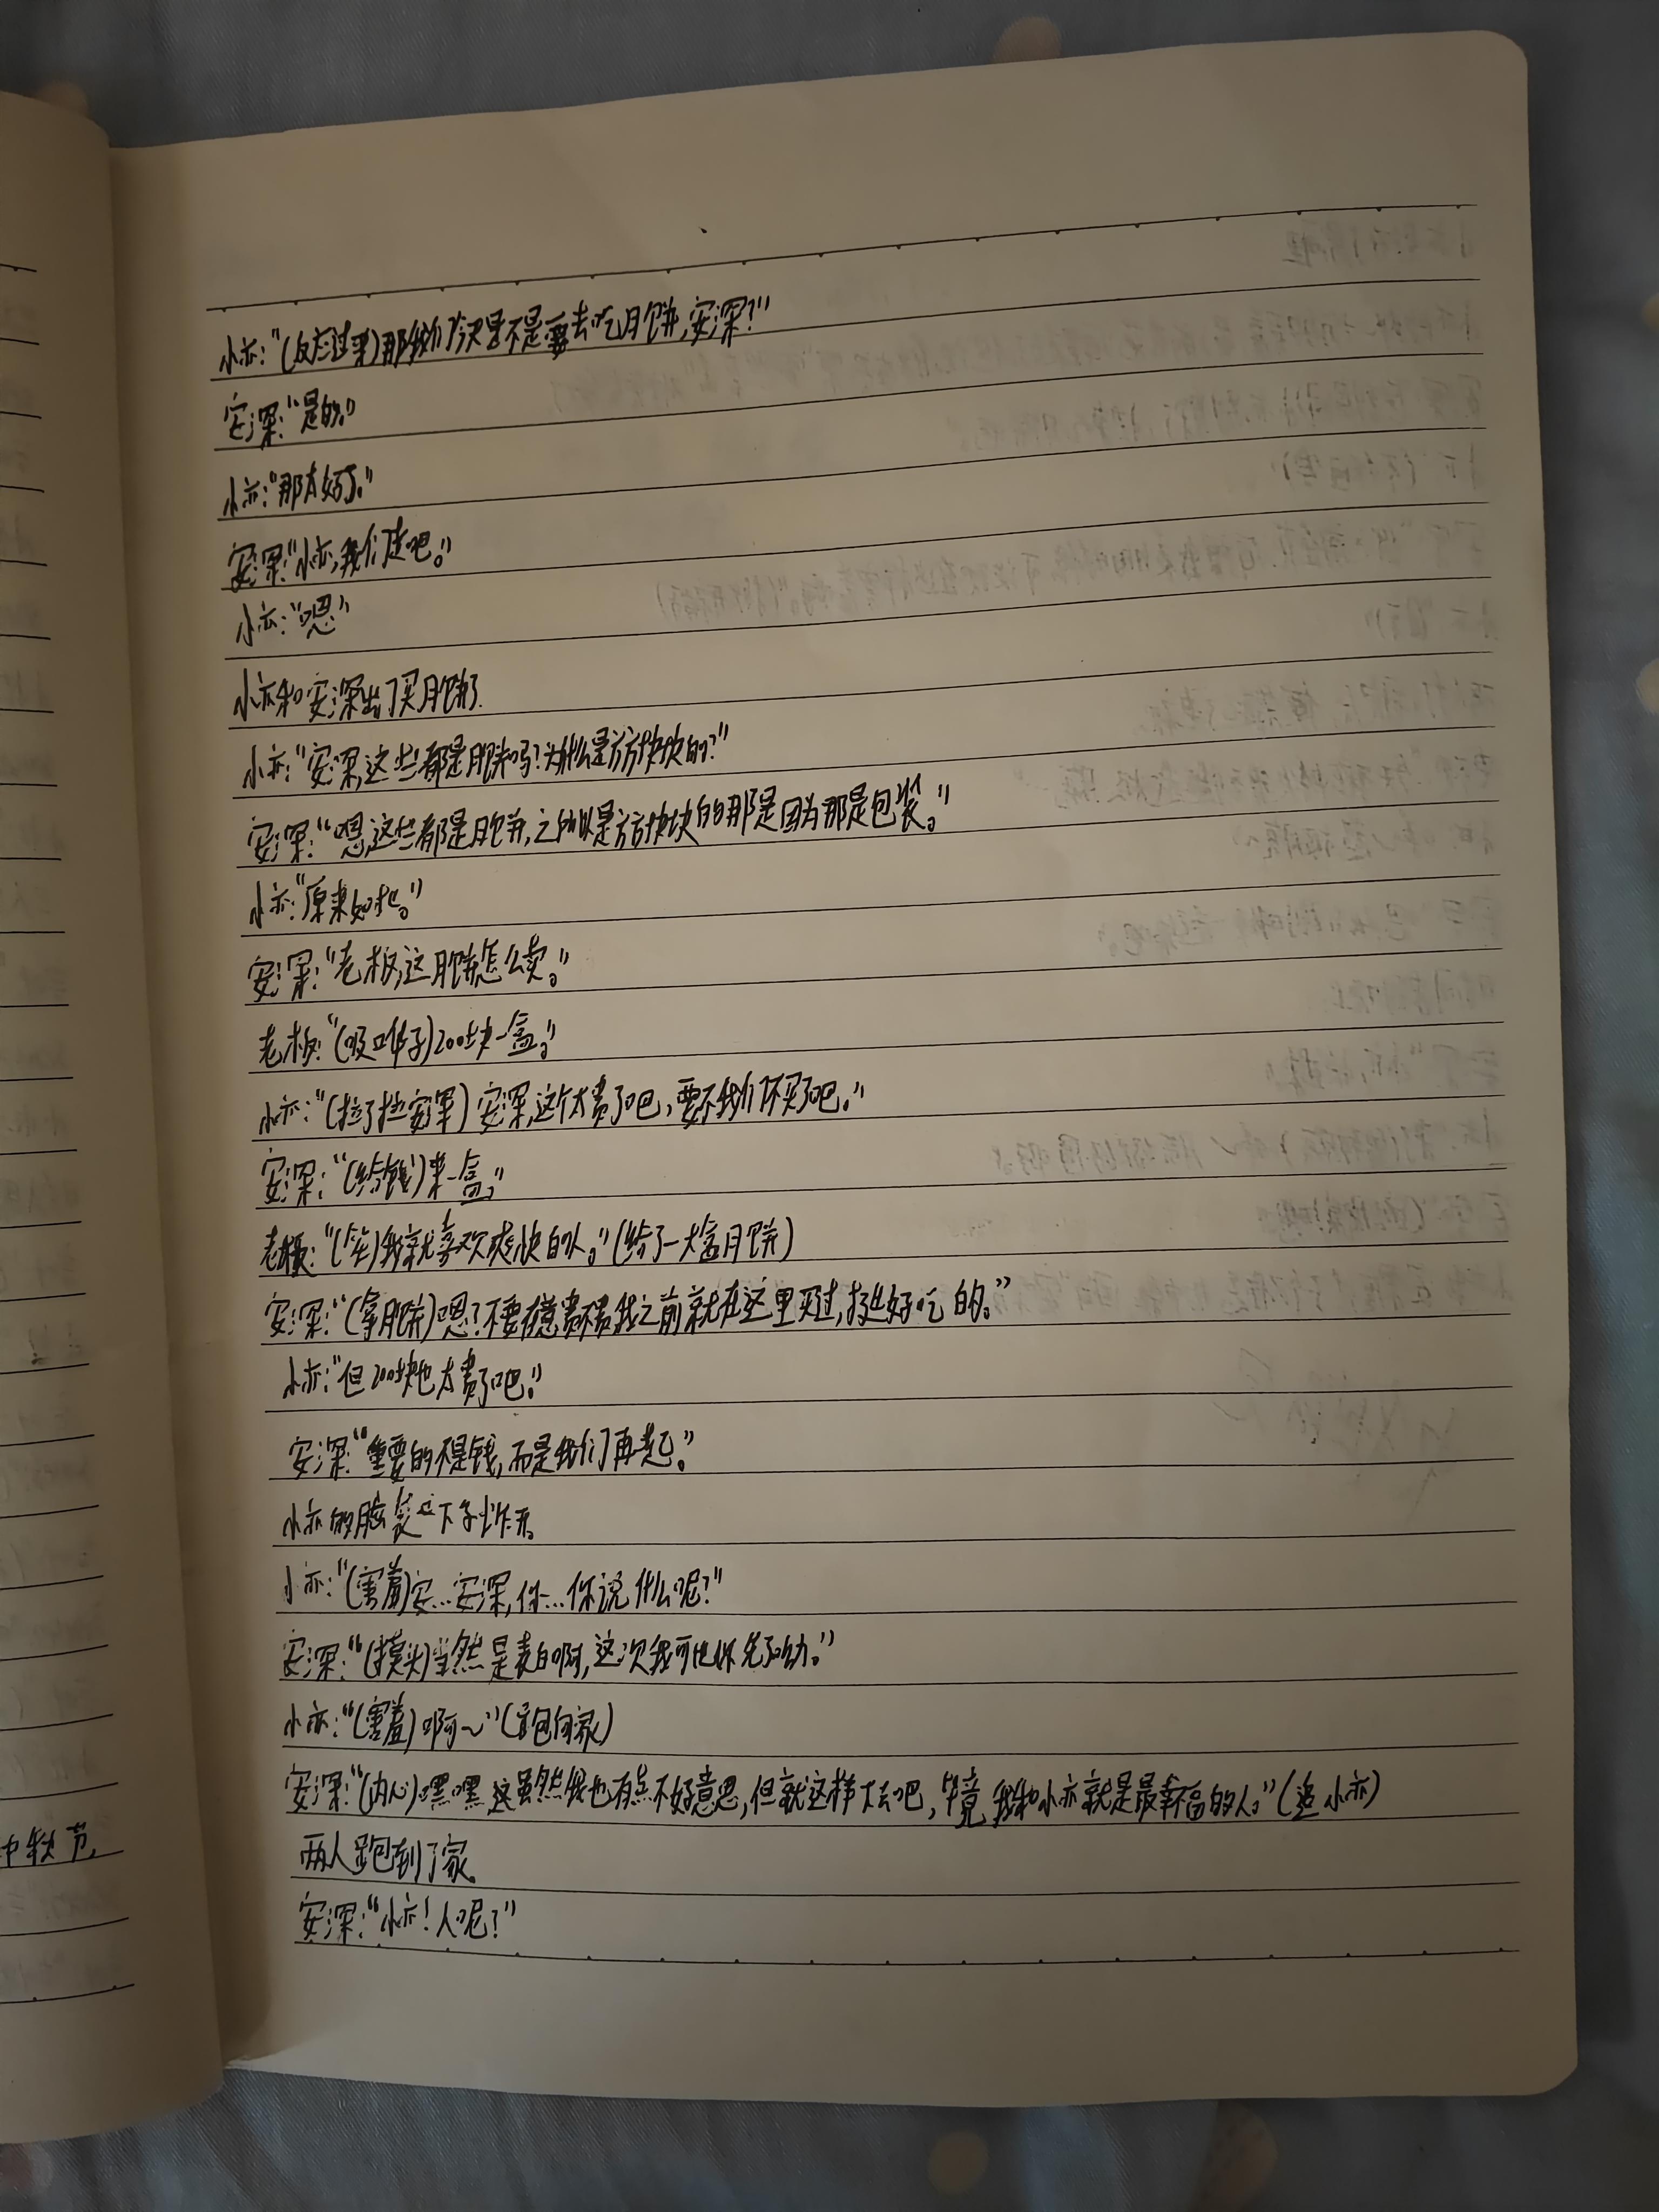 小亦:“(反应过来)那我们今天是不是要去吃月饼,安深?”
安深:“是的。”
小亦:“那太好了。”
安深:“小亦,我们走吧。”
小亦:“嗯”
小亦和安深出门买月饼了.
小亦:“安深,这些都是月饼吗?为什么是方方块块的?”
安深:“嗯,这些都是月饼,之所以是方方块块的那是因为那是包装。”
小亦:“原来如此。”
安深:“老板,这月饼怎么卖。”
老板:“(吸口)200块一盒。”
小亦:“(拉了拉安深)安深,这个太贵了吧,要不我们不买了吧。”
安深:“(给钱)来一盒。”
老板:“(笑)我就喜欢爽快的人。”(给了一大盒月饼)
安深:“(拿月饼)嗯?不要在意贵不贵我之前就在这里买过,挺好吃的。”
小亦:“但200块也太贵了吧。”
安深:“重要的不是钱,而是我们再一起。”
小亦的脑袋一下子炸开。
小亦:“(害羞)安…安深,你…你说什么呢?”
安深:“(摸头)当然是表白啊,这次我可比你先了哈。”
小亦:“(害羞)啊~”(跑向家)
安深:“(内心)嘿嘿,这虽然我也有点不好意思,但就这样下去吧,毕竟我和小亦就是最幸福的人。”(追小亦)
两人跑到了家。
安深:“小亦!人呢?”
中秋节,